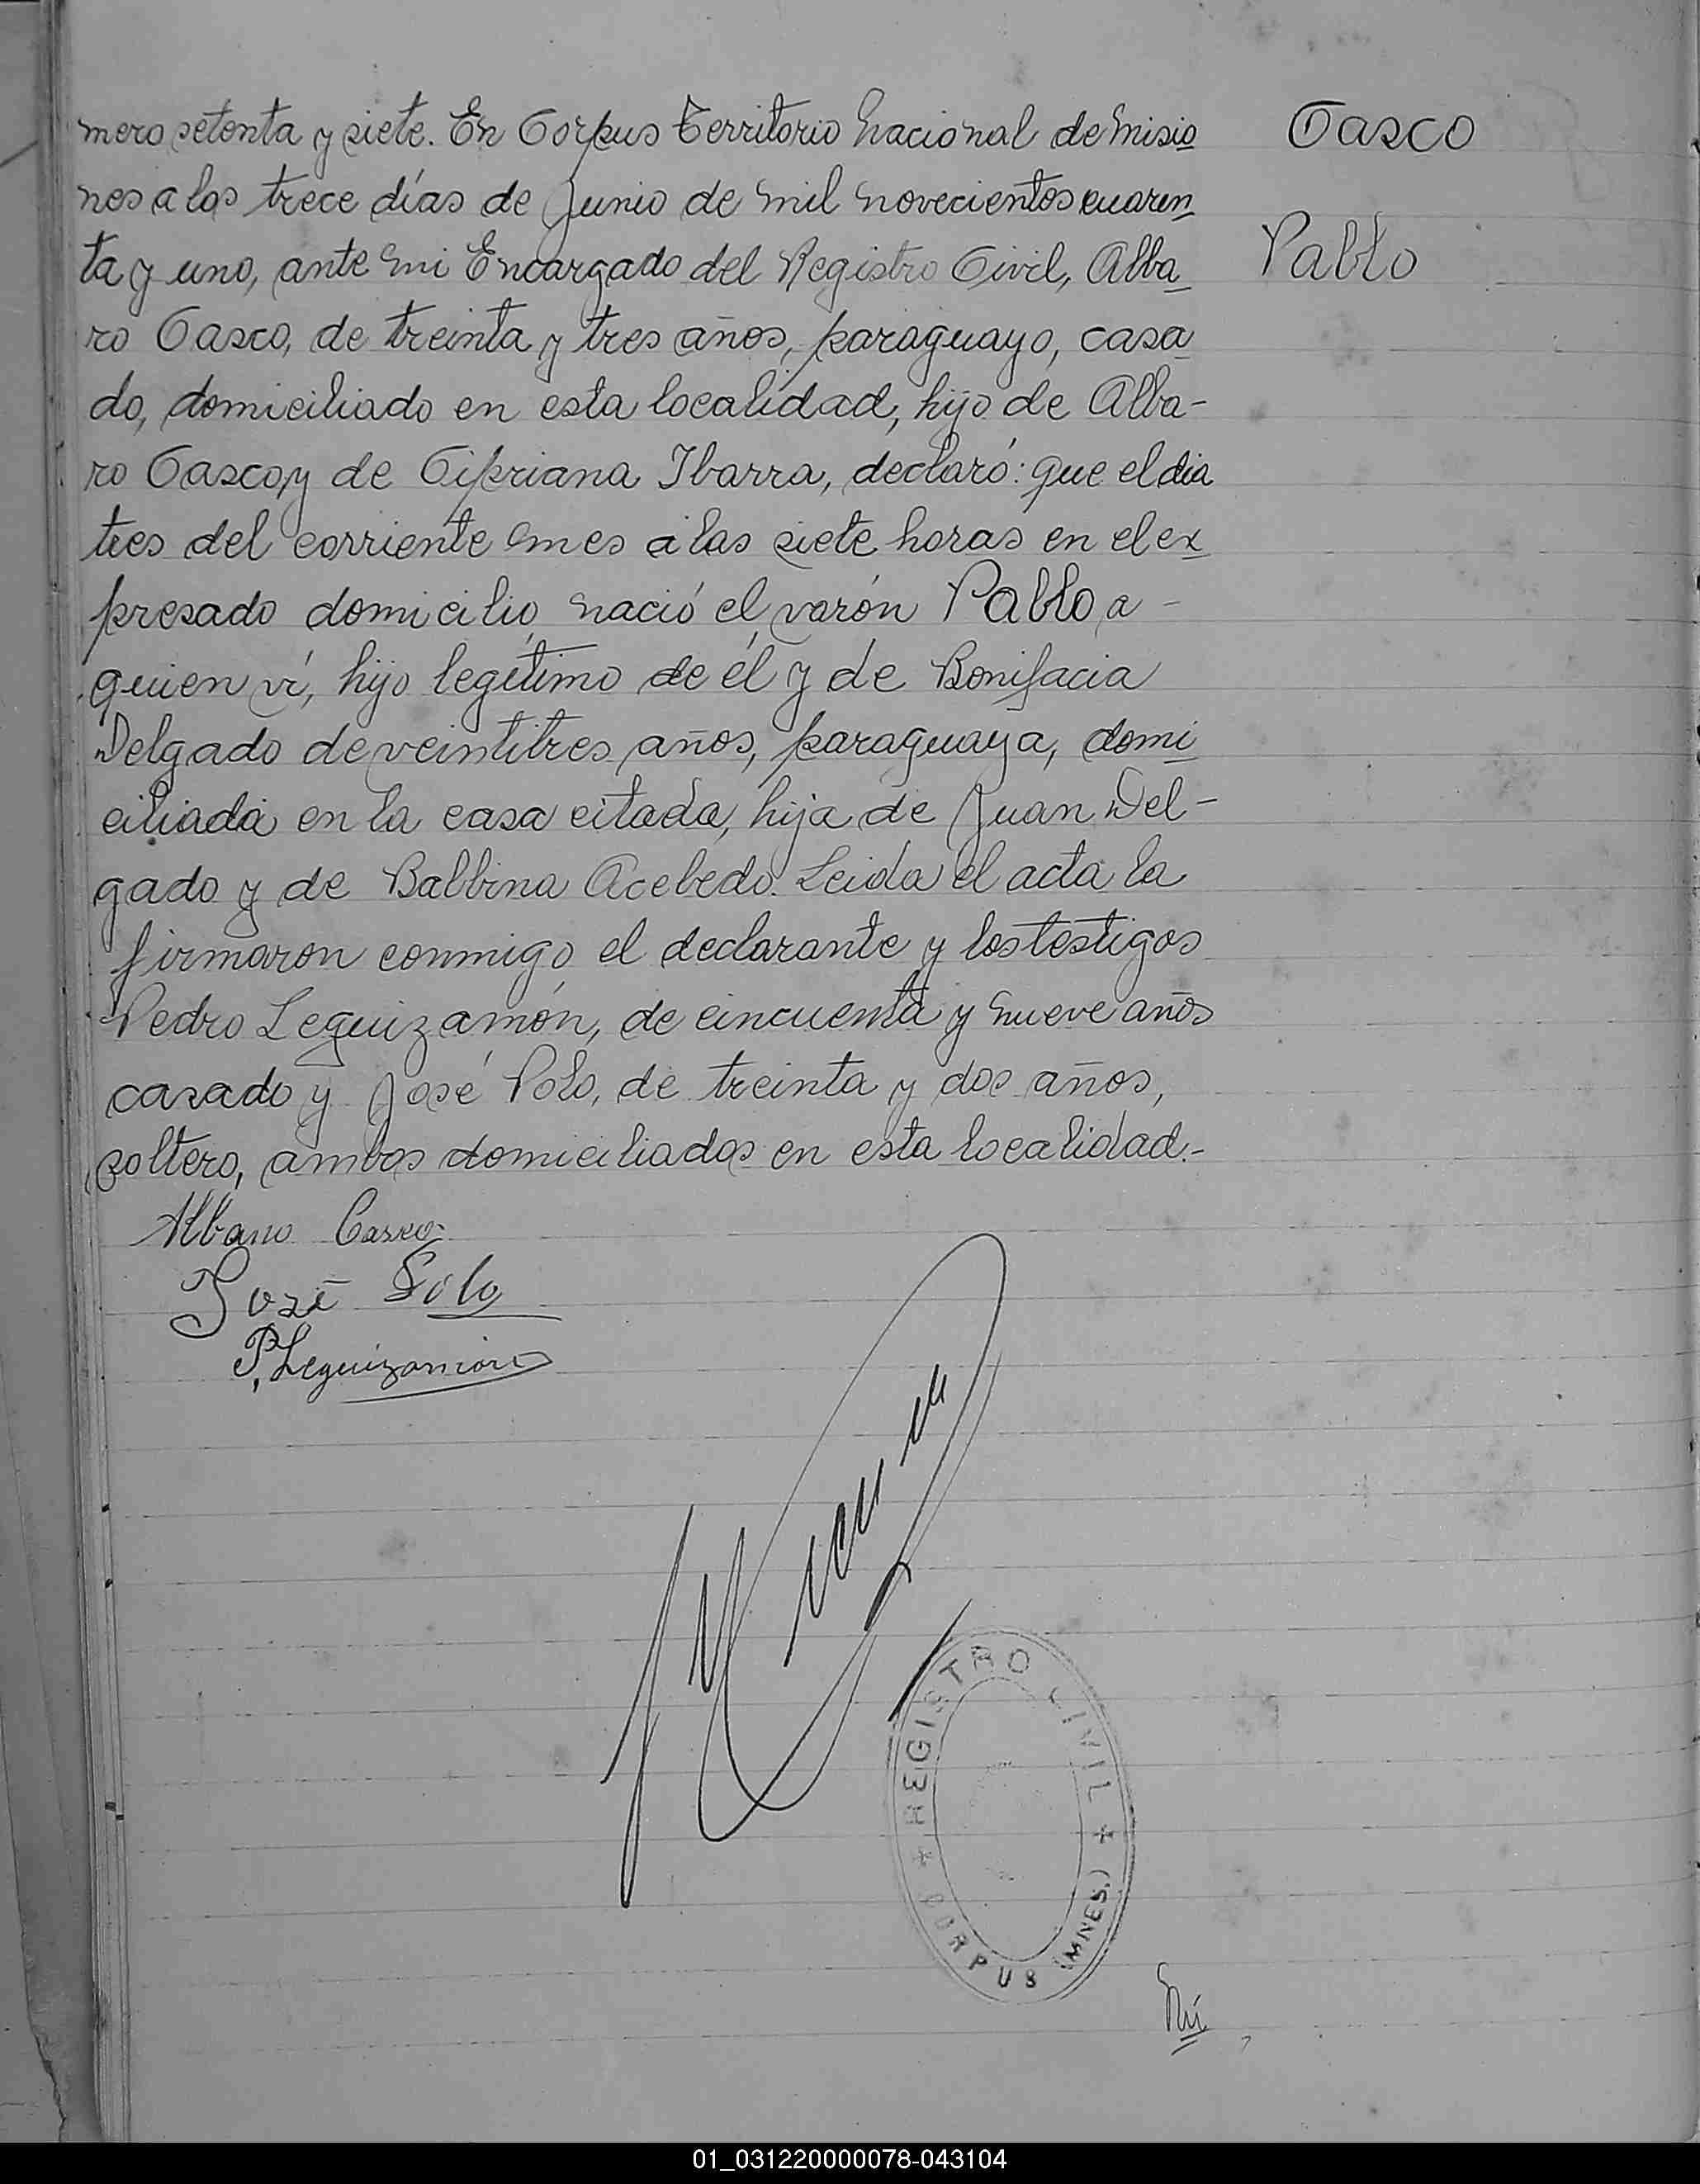 mero setenta y siete. En Corpus Territorio Nacional de Misio
nes a los trece días de Junio de mil novecientos cuaren
ta y uno, ante mi Encargado del Registro Civil, Alba
ro Casco, de treinta y tres años, paraguayo, casa
do, domiciliado en esta localidad, hijo de Alba-
ro Casco y de Cipriana Ibarra, declaró: que el dia
tres del corriente mes a las siete horas en el ex
presado domicilio, nació el varón Pablo a -
quien ví, hijo legítimo de él y de Bonifacia
Delgado de veintitres años, paraguaya, domi
ciliada en la casa citada, hija de Juan Del-
gado y de Balbina Acebedo. Leida el acta la
firmaron conmigo el declarante y los testigos
Pedro Leguizamón, de cincuenta y nueve años
casado y José Polo, de treinta y dos años,
soltero, ambos domiciliados en esta localidad.-
Casco
Pablo
Albano Casco
José Polo
P. Leguizamón
* REGISTRO CIVIL *
CORPUS (MNES.)
Nú
01_031220000078-043104